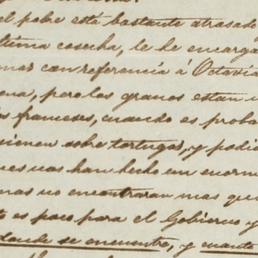 el pobre está bastante atrasado
última cosecha, le he encarga
mar con referencia á Octavia
ona, pero los granos estan
is franceses, cuando es proba
sobre tortugas, y podi
nos han hecho un enorm
mas no encontraran mas que
to es poco para el Gobierno y
donde se encuentra, y cuanto